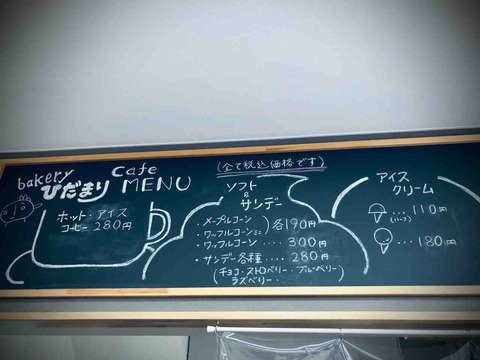 bakery
ひだまり
Cafe
MENU
ホット・アイス
コーヒー 280円
(全て税込価格です)
ソフト
&
サンデー
・メープルコーン
・ワッフルコーンミニ
各190円
・ワッフルコーン .... 300円
・サンデー各種 .... 280円
(チョコ・ストロベリー・ブルーベリー
ラズベリー・
アイス
クリーム
... 110円
(ハーフ)
... 180円